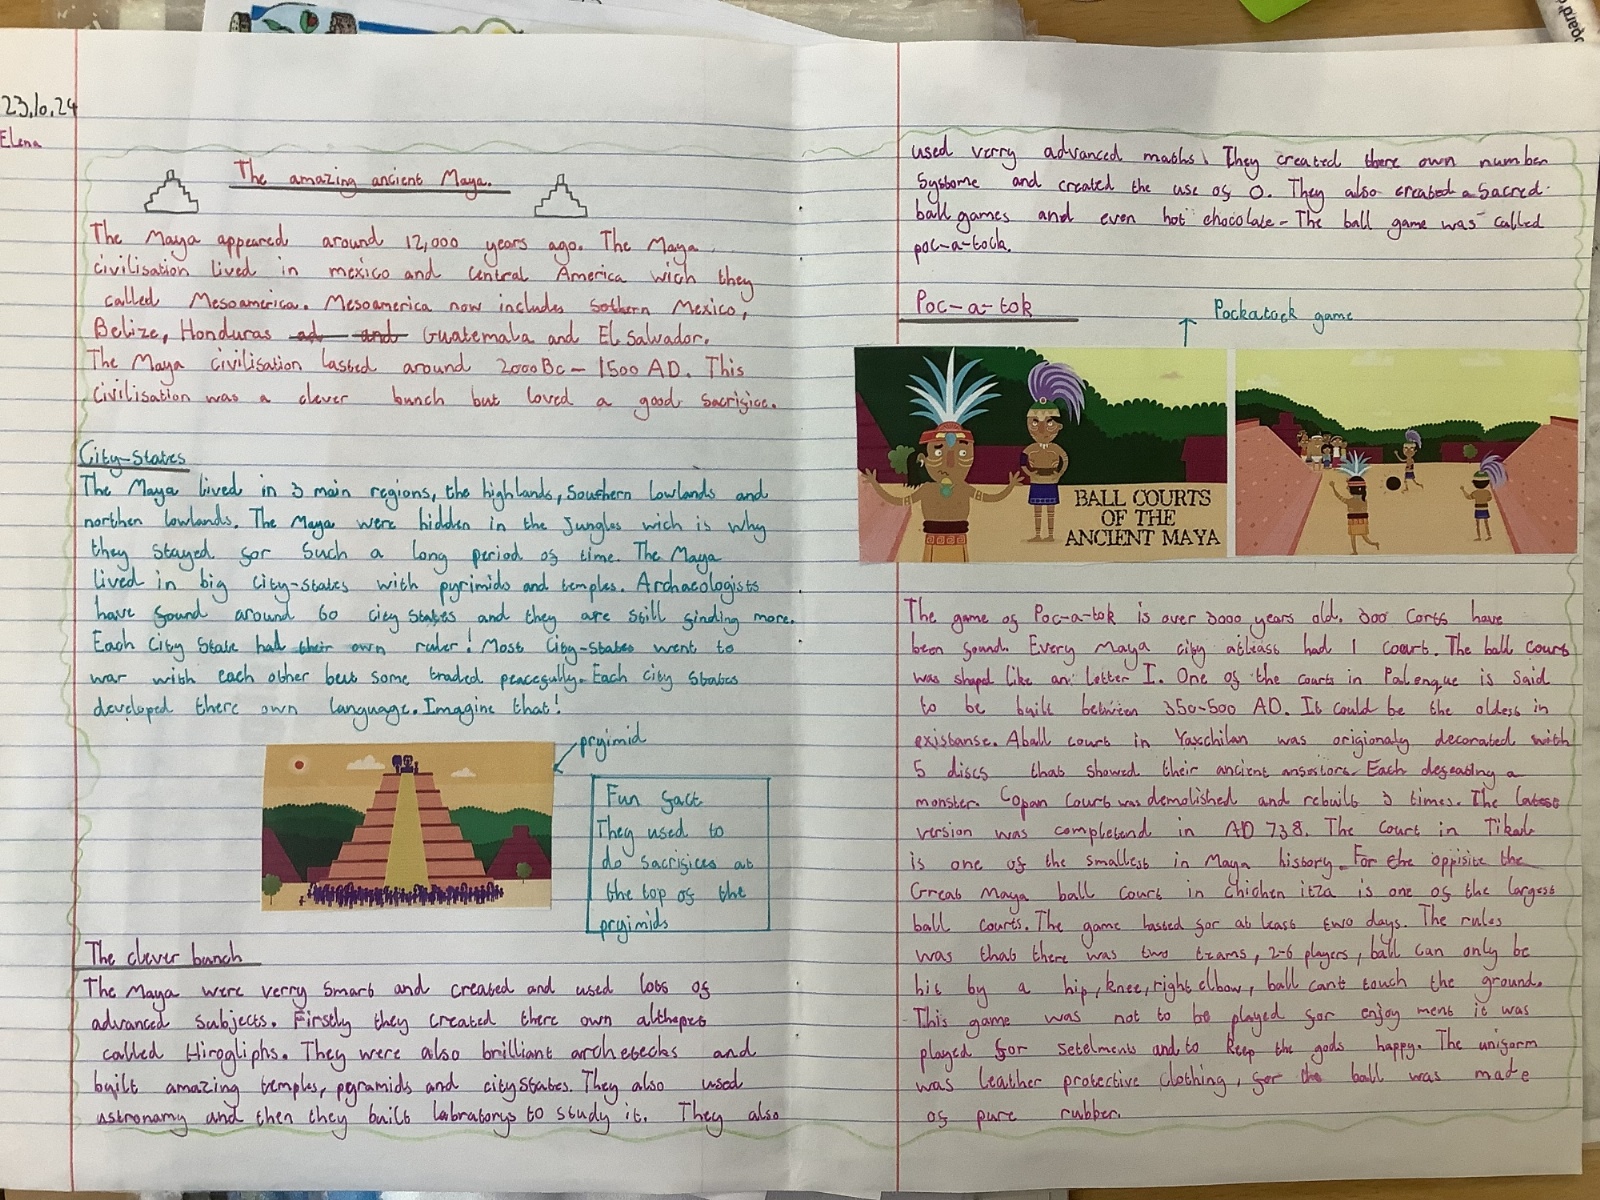 23.10.24
Elena
The amazing ancient Maya.
The Maya appeared around 12,000 years ago. The Maya
civilisation lived in mexico and central America wich they
called Mesoamerica. Mesoamerica now includes Sothern Mexico,
Belize, Honduras ad and Guatemala and El Salvador.
The Maya civilisation lasted around 2000 Bc - 1500 AD. This
civilisation was a clever bunch but loved a good sacrifice.
City-States
The Maya lived in 3 main regions, the highlands, Southern lowlands and
northen lowlands. The Maya were hidden in the Jungles wich is why
they stayed for such a long period of time. The Maya
lived in big City-States with pyrimids and temples. Archaeologists
have found around 60 city States and they are still finding more.
Each City State had their own ruler! Most City-States went to
war with each other but some traded peacefully. Each city States
developed there own language. Imagine that!
pryimid
Fun fact
They used to
do sacrifices at
the top of the
pryimids
The clever bunch
The Maya were verry smart and created and used lots of
advanced subjects. Firstly they created there own althepet
called Hirogliphs. They were also brilliant archetecks and
built amazing temples, pyramids and city states. They also used
astronamy and then they built labratorys to study it. They also
used verry advanced maths. They created there own number
Systome and created the use of 0. They also created a Sacred
ball games and even hot chocolate - The ball game was called
poc-a-tock.
Poc-a-tok
Pockatock game
BALL COURTS
OF THE
ANCIENT MAYA
The game of Poc-a-tok is over 3000 years old. 300 Corts have
been found. Every Maya city atleast had 1 court. The ball court
was shaped like an letter I. One of the courts in Palenque is said
to be built between 350-500 AD. It could be the oldest in
existanse. A ball court in Yaxchilan was origionaly decorated with
5 discs that showed their ancient ansestors. Each defeating a
monster. Copan Court was demolished and rebuilt 3 times. The latest
version was completend in AD 738. The Court in Tikal
is one of the smallest in Maya history. For the oppisite the
Great Maya ball Court in Chichen itza is one of the largest
ball courts. The game lasted for at least two days. The rules
was that there was two teams, 2-6 players, ball can only be
hit by a hip, knee, right elbow, ball cant touch the ground.
This game was not to be played for enjoy ment it was
played for setelments and to keep the gods happy. The uniform
was leather protective clothing, for the ball was made
of pure rubber.